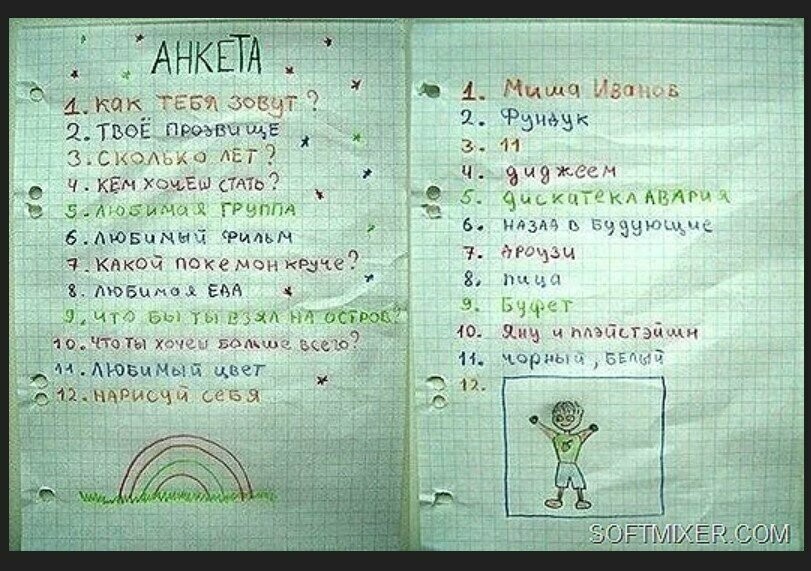 АНКЕТА
1. КАК ТЕБЯ ЗОВУТ?
2. ТВОЁ ПРОЗВИЩЕ
3. СКОЛЬКО ЛЕТ?
4. КЕМ ХОЧЕШ СТАТЬ?
5. ЛЮБИМАЯ ГРУППА
6. ЛЮБИМЫЙ ФИЛЬМ
7. КАКОЙ ПОКЕМОН КРУЧЕ?
8. ЛЮБИМАЯ ЕДА
9. ЧТО БЫ ТЫ ВЗЯЛ НА ОСТРОВ?
10. ЧТО ТЫ ХОЧЕШ БОЛЬШЕ ВСЕГО?
11. ЛЮБИМЫЙ ЦВЕТ
12. НАРИСУЙ СЕБЯ
1. Миша Иванов
2. Фундук
3. 11
4. диджеем
5. ДИСКАТЕКЛАВАРИЯ
6. НАЗАД В БУДУЮЩИЕ
7. АРОУЗИ
8. пица
9. Буфет
10. Яну и плэйстэйшн
11. чорный, БЕЛЫЙ
12.
SOFTMIXER.COM